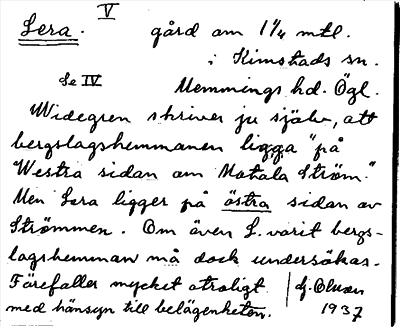 V
Sera. gård om 1¼ mtl.
i Kimstads sn.
Se IV Memmings hd. Ögl.
Widegren skriver ju själv, att
bergslagshemmanen ligga "på
Westra sidan om Motala Ström."
Men Sera ligger på östra sidan av
Strömmen. Om även S. varit bergs-
lagshemman må dock undersökas.
Förefaller mycket otroligt
med hänsyn till belägenheten.
1937